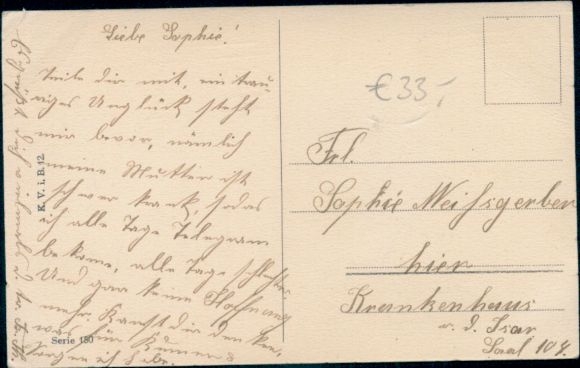 Liebe Sophie!
Teile dir mit, ein trau-
riges Unglück steht
mir bevor, nämlich
meine Mutter ist
schwer krank, sodas
ich alle Tage Telegram
bekome, alle Tage schlechter
Und gar keine Hoffnung
mehr. Kanst dir den
was für Kumer &
Sorgen ich habe.
K. V. i. B. 12.
Serie 180
€ 33,-
Frl.
Sophie Weissgerber
hier
Krankenhaus
a. d. Isar
Saal 104.